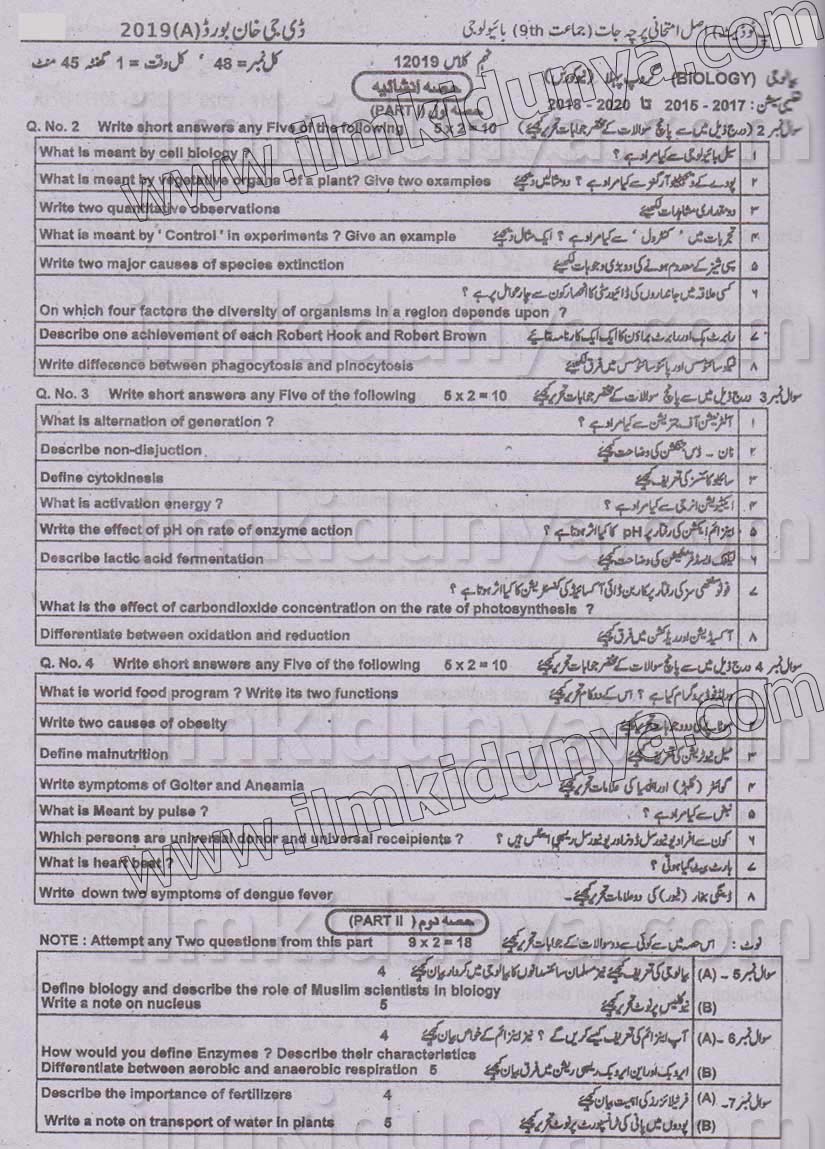 اپ ٹو ڈیٹ) اصل امتحانی پرچہ جات (جماعت 9th) بائیولوجی ڈی جی خان بورڈ 2019(A)
نہم کلاس 12019 کل نمبر = 48 کل وقت = 1 گھنٹہ 45 منٹ
حصہ انشائیہ
(BIOLOGY) گروپ پہلا
2015 - 2017 تا 2018 - 2020
حصہ اول (PART I)
Q. No. 2 Write short answers any Five of the following 5 x 2 = 10 سوال نمبر 2 درج ذیل میں سے پانچ سوالات کے مختصر جوابات تحریر کیجئے
What is meant by cell biology ? سیل بائیولوجی سے کیا مراد ہے ؟ ۱
What is meant by vegetative organs of a plant? Give two examples پودے کے ویجیٹیٹو آرگنز سے کیا مراد ہے ؟ دو مثالیں دیجئے ۲
Write two quantitative observations دو مقداری مشاہدات لکھیئے ۳
What is meant by ' Control ' in experiments ? Give an example تجربات میں ' کنٹرول ' سے کیا مراد ہے ؟ ایک مثال دیجئے ۴
Write two major causes of species extinction سپی شیز کے معدوم ہونے کی دو بڑی وجوہات لکھیئے ۵
کسی علاقہ میں جانداروں کی ڈائیورسٹی کا انحصار کون سے چار عوامل پر ہے ؟ ۶
On which four factors the diversity of organisms in a region depends upon ?
Describe one achievement of each Robert Hook and Robert Brown رابرٹ ہک اور رابرٹ براؤن کا ایک ایک کارنامہ بتائیے ۷
Write difference between phagocytosis and pinocytosis فیگوسائٹوسس اور پائنوسائٹوسس میں فرق لکھیئے ۸
Q. No. 3 Write short answers any Five of the following 5 x 2 = 10 سوال نمبر 3 درج ذیل میں سے پانچ سوالات کے مختصر جوابات تحریر کیجئے
What is alternation of generation ? آلٹرنیشن آف جنریشن سے کیا مراد ہے ؟ ۱
Describe non-disjuction نان - ڈس جنکشن کی وضاحت کیجئے ۲
Define cytokinesis سائٹوکائنسز کی تعریف کیجئے ۳
What is activation energy ? ایکٹیویشن انرجی سے کیا مراد ہے ؟ ۴
Write the effect of pH on rate of enzyme action اینزائم ایکشن کی رفتار پر pH کا کیا اثر ہوتا ہے ؟ ۵
Describe lactic acid fermentation لیکٹک ایسڈ فرمنٹیشن کی وضاحت کیجئے ۶
فوٹوسنتھی سز کی رفتار پر کاربن ڈائی آکسائیڈ کی کنسنٹریشن کا کیا اثر ہوتا ہے ؟ ۷
What is the effect of carbondioxide concentration on the rate of photosynthesis ?
Differentiate between oxidation and reduction آکسیڈیشن اور ریڈکشن میں فرق کیجئے ۸
Q. No. 4 Write short answers any Five of the following 5 x 2 = 10 سوال نمبر 4 درج ذیل میں سے پانچ سوالات کے مختصر جوابات تحریر کیجئے
What is world food program ? Write its two functions ورلڈ فوڈ پروگرام کیا ہے ؟ اس کے دو کام تحریر کیجئے ۱
Write two causes of obesity موٹاپا کی دو وجوہات تحریر کیجئے ۲
Define malnutrition میل نیوٹریشن کی تعریف کیجئے ۳
Write symptoms of Golter and Aneamia گوائٹر (گلہڑ) اور انیمیا کی علامات تحریر کیجئے ۴
What is Meant by pulse ? نبض سے کیا مراد ہے ؟ ۵
Which persons are universal donor and universal receipients ? کون سے افراد یونیورسل ڈونر اور یونیورسل ریسپی انٹس ہیں ؟ ۶
What is heart beat ? ہارٹ بیٹ کیا ہوتی ؟ ۷
Write down two symptoms of dengue fever ڈینگی بخار (فیور) کی دو علامات تحریر کیجئے۔ ۸
حصہ دوم (PART II)
NOTE : Attempt any Two questions from this part 9 x 2 = 18 نوٹ : اس حصہ میں سے کوئی سے دو سوالات کے جوابات تحریر کیجئے
سوال نمبر 5- (A) بیالوجی کی تعریف کیجئے نیز مسلمان سائنسدانوں کا بیالوجی میں کردار بیان کیجئے 4
Define biology and describe the role of Muslim scientists in biology
Write a note on nucleus 5 نیوکلیئس پر نوٹ تحریر کیجئے (B)
سوال نمبر 6- (A) آپ اینزائم کی تعریف کیسے کریں گے ؟ نیز اینزائم کے خواص بیان کیجئے 4
How would you define Enzymes ? Describe their characteristics
Differentiate between aerobic and anaerobic respiration 5 ایروبک اور این ایروبک ریسپی ریشن میں فرق بیان کیجئے (B)
Describe the importance of fertilizers 4 فرٹیلائزرز کی اہمیت بیان کیجئے (A) سوال نمبر 7-
Write a note on transport of water in plants 5 پودوں میں پانی کی ٹرانسپورٹ پر نوٹ تحریر کیجئے (B)
www.ilmkidunya.com
www.ilmkidunya.com
ilmkidunya.com
ilmkidunya.com
ilmkidunya.com
ilmkidunya.com
ilmkidunya.com
ilmkidunya.com